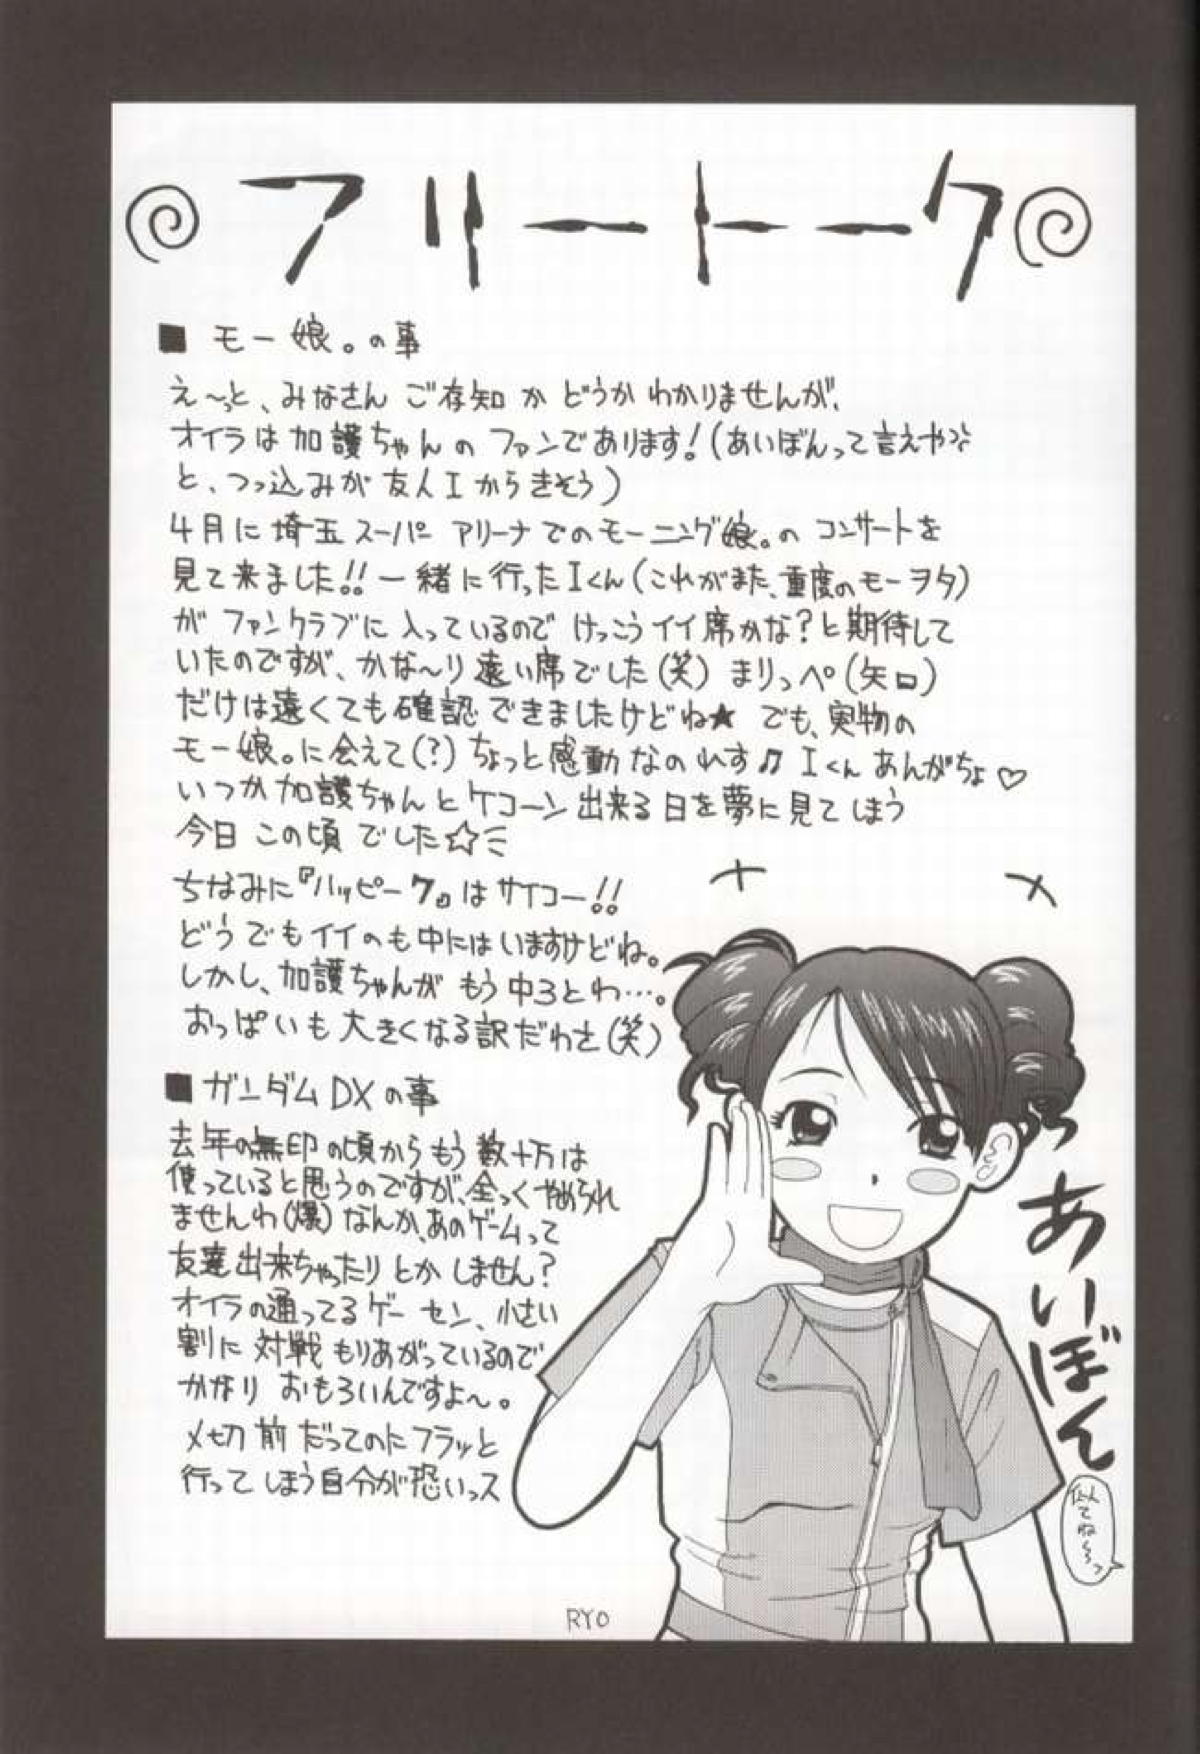 フリートーク
■ モー娘。の事
え～っと、みなさん ご存知か どうか わかりませんが、
オイラは加護ちゃんの ファンであります!(あいぼんって言えや
と、つっ込みが 友人Iからきそう)
4月に 埼玉スーパーアリーナでのモーニング娘。の コンサートを
見て来ました!!一緒に行ったIくん(これがまた、重度のモーヲタ)
が ファンクラブに 入っているので けっこうイイ席かな?と期待して
いたのですが、かな～り遠い席でした(笑)まりっぺ(矢口)
だけは遠くても確認できましたけどね★ でも、実物の
モー娘。に会えて(?)ちょっと感動なのれす♫ Iくんあんがちょ♡
いつか加護ちゃんとケコーン出来る日を夢に見てしまう
今日この頃でした☆ミ
ちなみに『ハッピー7』はサイコー!!
どうでもイイのも中にはいますけどね。
■ ガンダムDXの事
去年の無印の頃からもう数十万は
使っていると思うのですが、全っくやめられ
ませんわ(爆)なんか、あのゲームって
友達出来ちゃったりとかしません?
オイラの通ってるゲーセン、小さい
割に 対戦もりあがっているので
かなり おもろいんですよ～。
〆切前だってのにフラッと
行ってしまう自分が恐いっス
あいぼん
似てね～っ
RYO